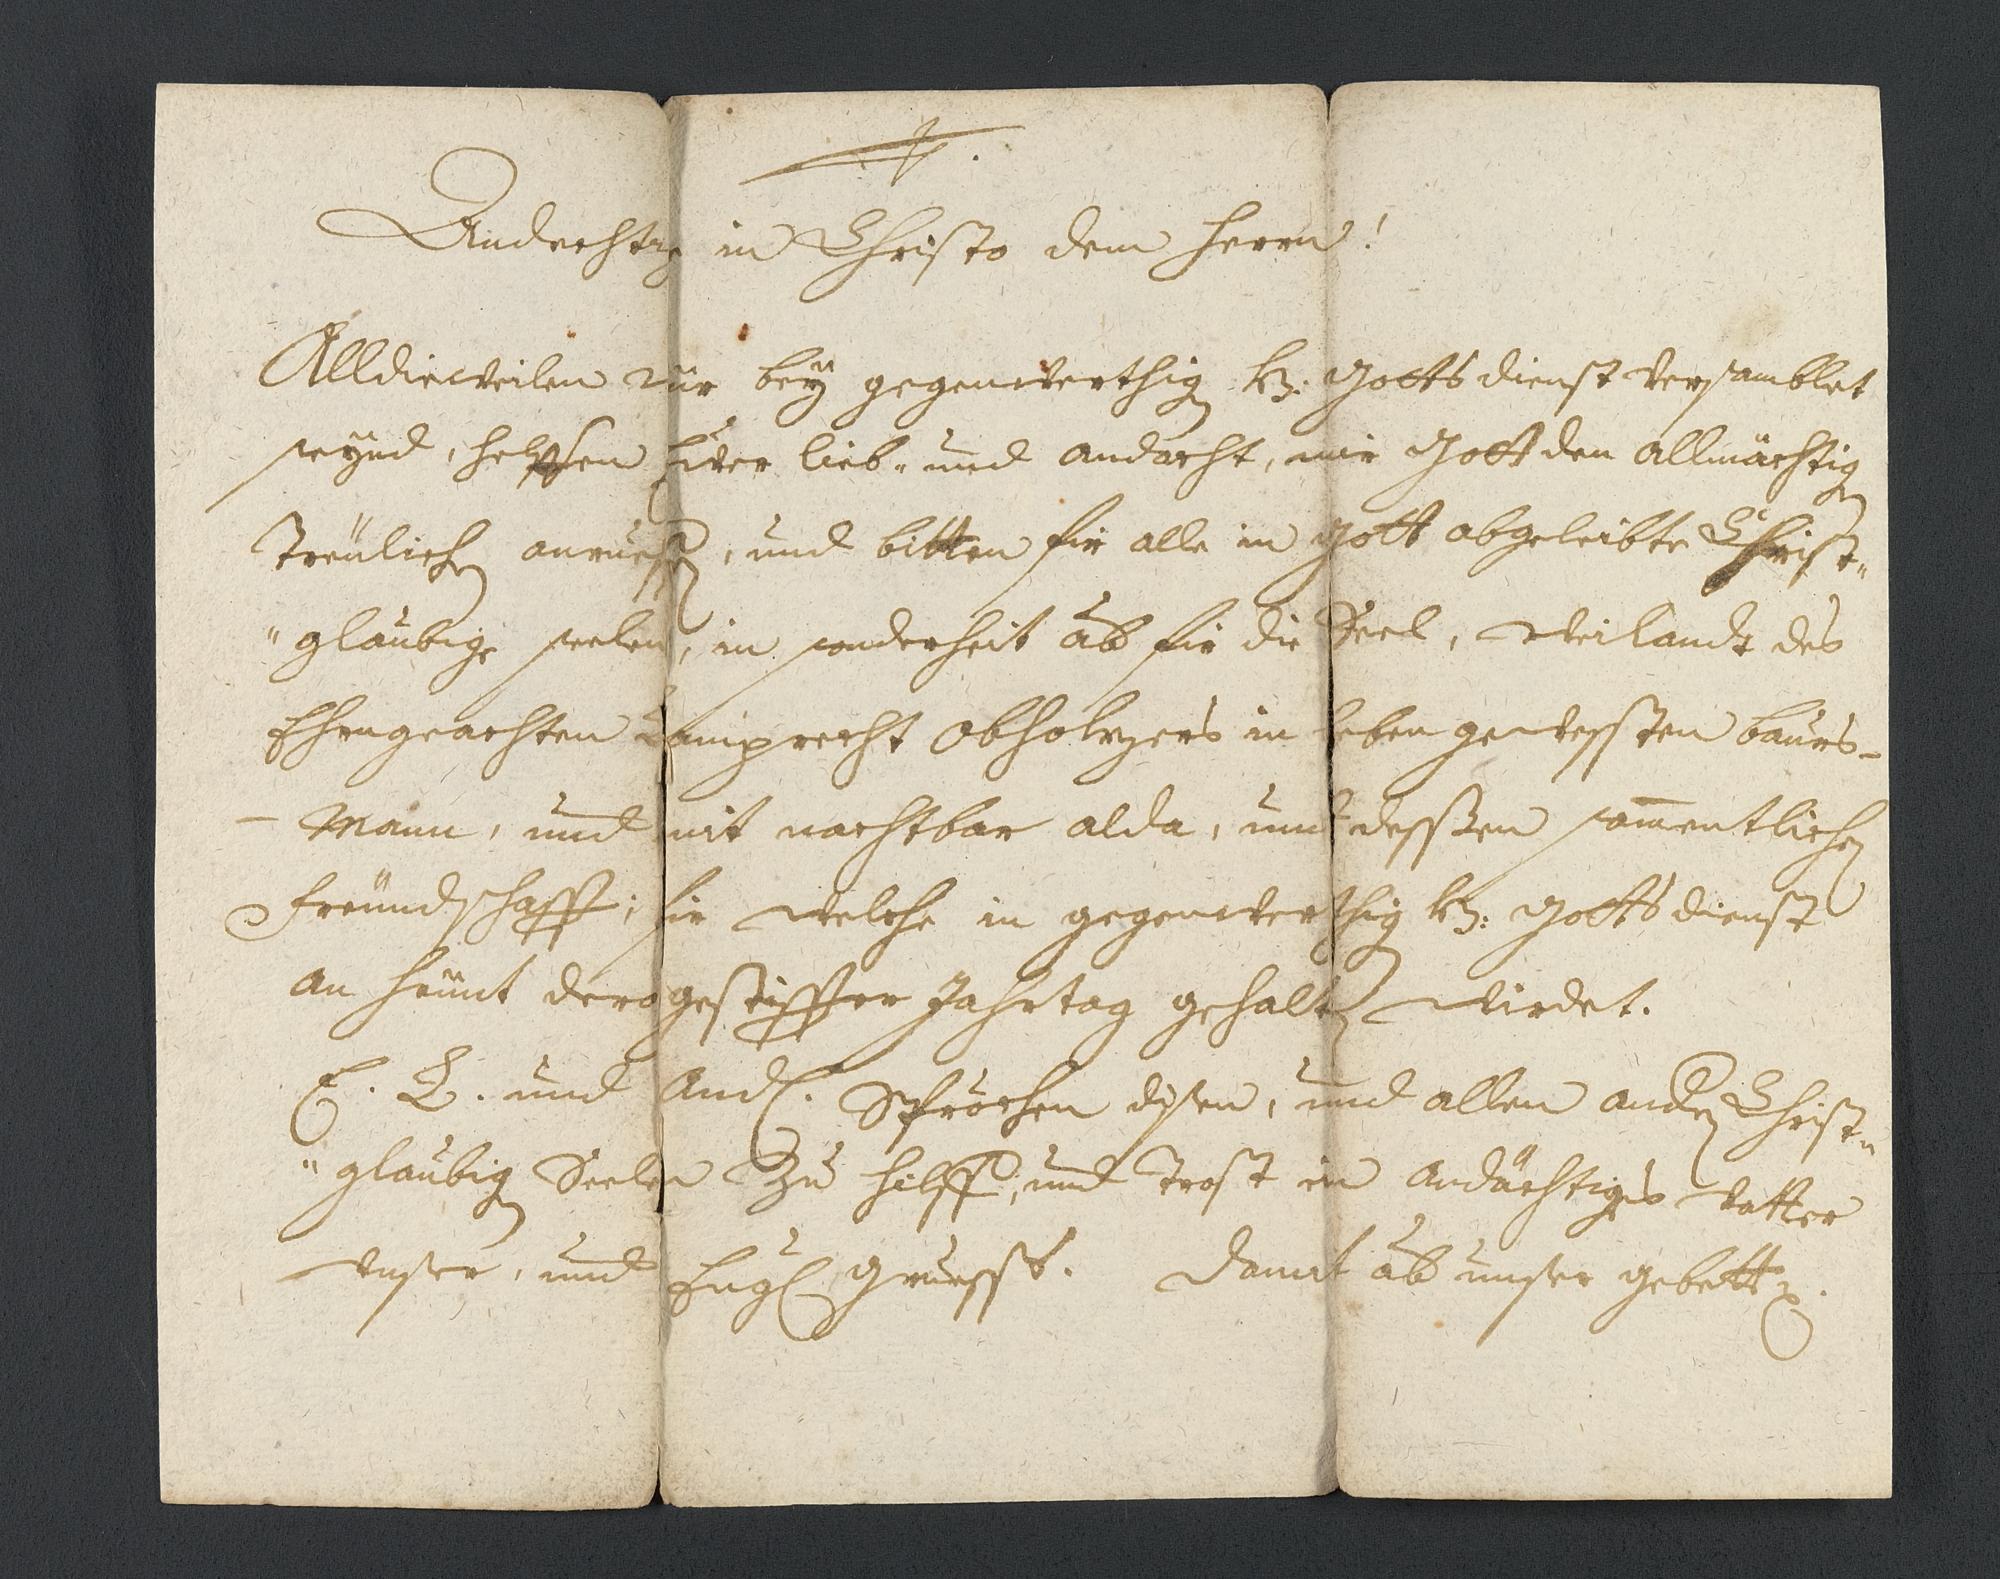 Andechtig in Christo dem Herrn!
Alldieweilen wür bey gegenwerthig hl: Gottsdienst versamblet
seynd, helffen Euer lieb- und andacht, mir Gott den allmächtig
Treülichen anrueffen, und bitten fir alle in Gott abgeleibte Christ„
„glaubige seelen, in sonderheit ab fir die Seel, Weilandt des
Ehrngeachten Lamprecht Obholzers in leben gewessten baurs-
- Mann, und mit nachtbar alda, und dessen sam̄entlichen
freündschafft; fir welche in gegenwerthig hl: Gottsdienst
an heünt dero gestiffter Jahrtag gehalten wirdet.
E. L. und And. Sprechen disen, und allen andern Christ„
„glaubigen Seelen zu hilff, und Trost in andächtiges vatter
unser, und Engl: Gruesst. Damit ab unser gebett.